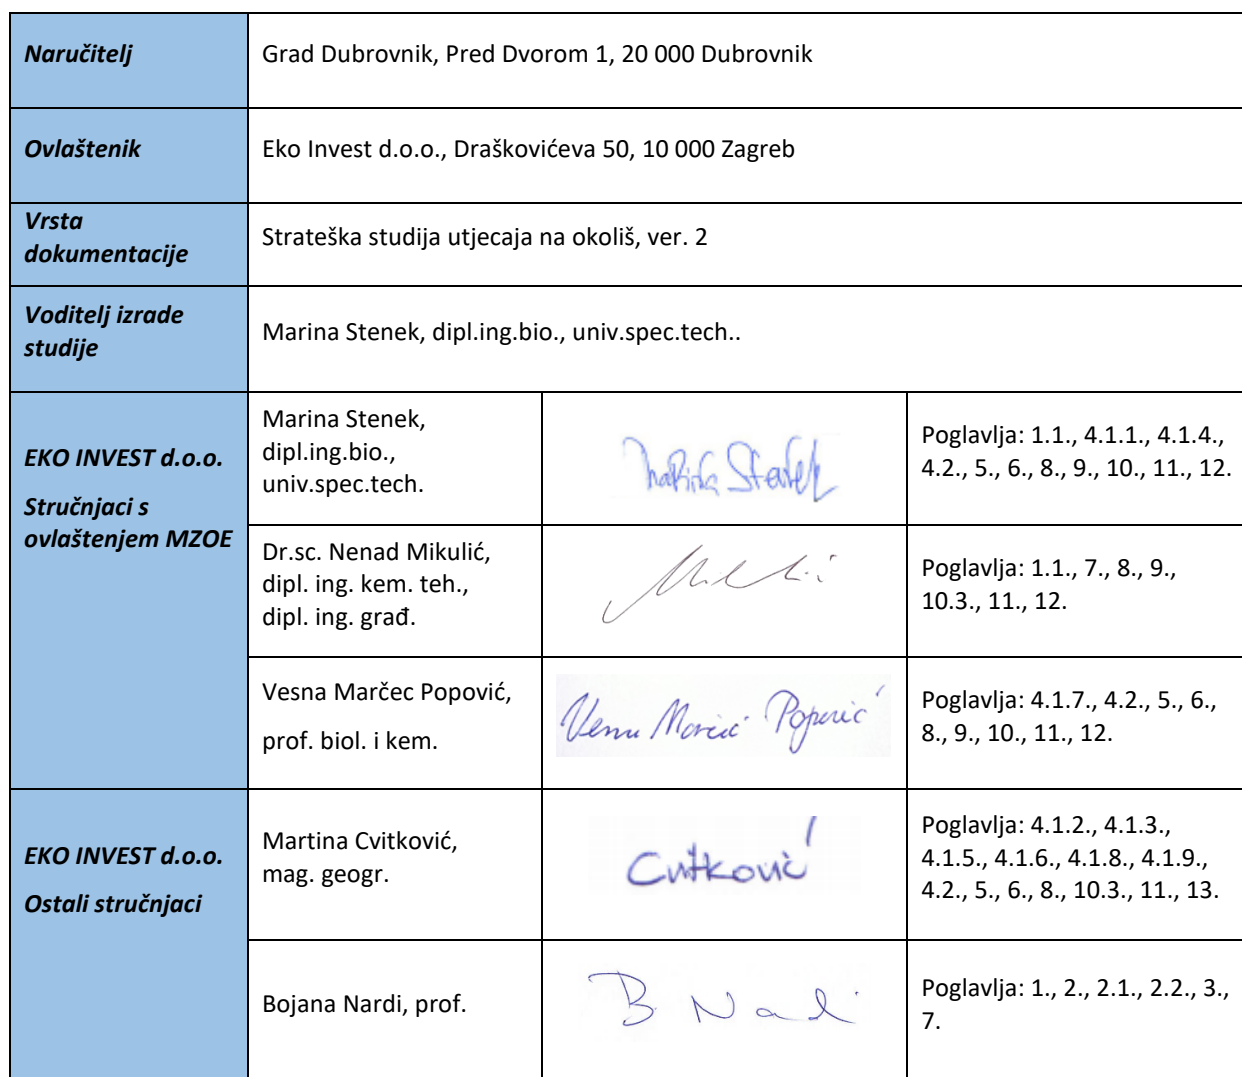 Naručitelj
Grad Dubrovnik, Pred Dvorom 1, 20 000 Dubrovnik
Ovlaštenik
Eko Invest d.o.o., Draškovićeva 50, 10 000 Zagreb
Vrsta
dokumentacije
Strateška studija utjecaja na okoliš, ver. 2
Voditelj izrade
studije
Marina Stenek, dipl.ing.bio., univ.spec.tech..
EKO INVEST d.o.o.
Stručnjaci s
ovlaštenjem MZOE
Marina Stenek,
dipl.ing.bio.,
univ.spec.tech.
Marina Stenek
Poglavlja: 1.1., 4.1.1., 4.1.4.,
4.2., 5., 6., 8., 9., 10., 11., 12.
Dr.sc. Nenad Mikulić,
dipl. ing. kem. teh.,
dipl. ing. građ.
Poglavlja: 1.1., 7., 8., 9.,
10.3., 11., 12.
Vesna Marčec Popović,
prof. biol. i kem.
Poglavlja: 4.1.7., 4.2., 5., 6.,
8., 9., 10., 11., 12.
EKO INVEST d.o.o.
Ostali stručnjaci
Martina Cvitković,
mag. geogr.
Cvitković
Poglavlja: 4.1.2., 4.1.3.,
4.1.5., 4.1.6., 4.1.8., 4.1.9.,
4.2., 5., 6., 8., 10.3., 11., 13.
Bojana Nardi, prof.
B Nardi
Poglavlja: 1., 2., 2.1., 2.2., 3.,
7.